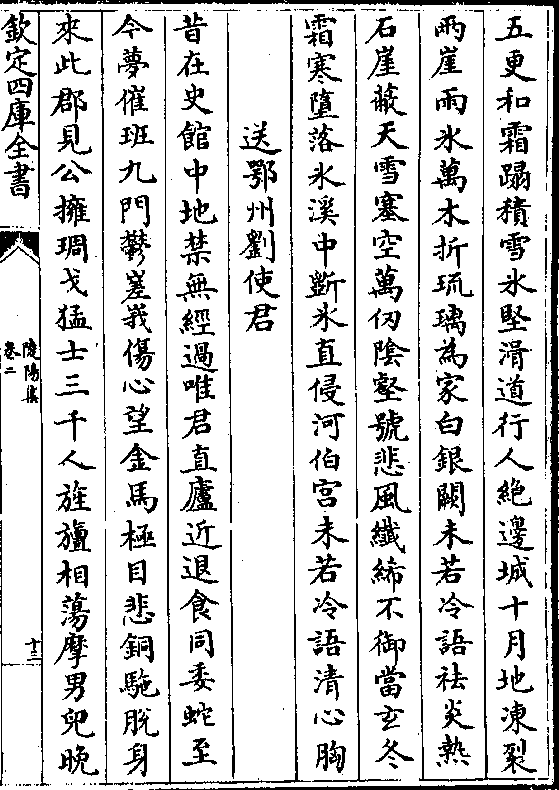 五更和霜蹋積雪氷堅滑道行人絶邊城十月地凍裂
兩崖雨氷萬木折琉璃為家白銀闕未若冷語祛炎熱
石崖蔽天雪塞空萬仞陰壑號悲風纖絺不御當玄冬
霜寒墮落氷溪中斷氷直侵河伯宮未若冷語清心胸
送鄂州劉使君
昔在史館中地禁無經過唯君直廬近退食同委蛇至
今夢催班九門鬱嵳峩傷心望金馬極目悲銅駞脫身
來此郡見公擁琱戈猛士三千人旌旜相蕩摩男兒晚
欽定四庫全書
陵陽集
卷二
十三